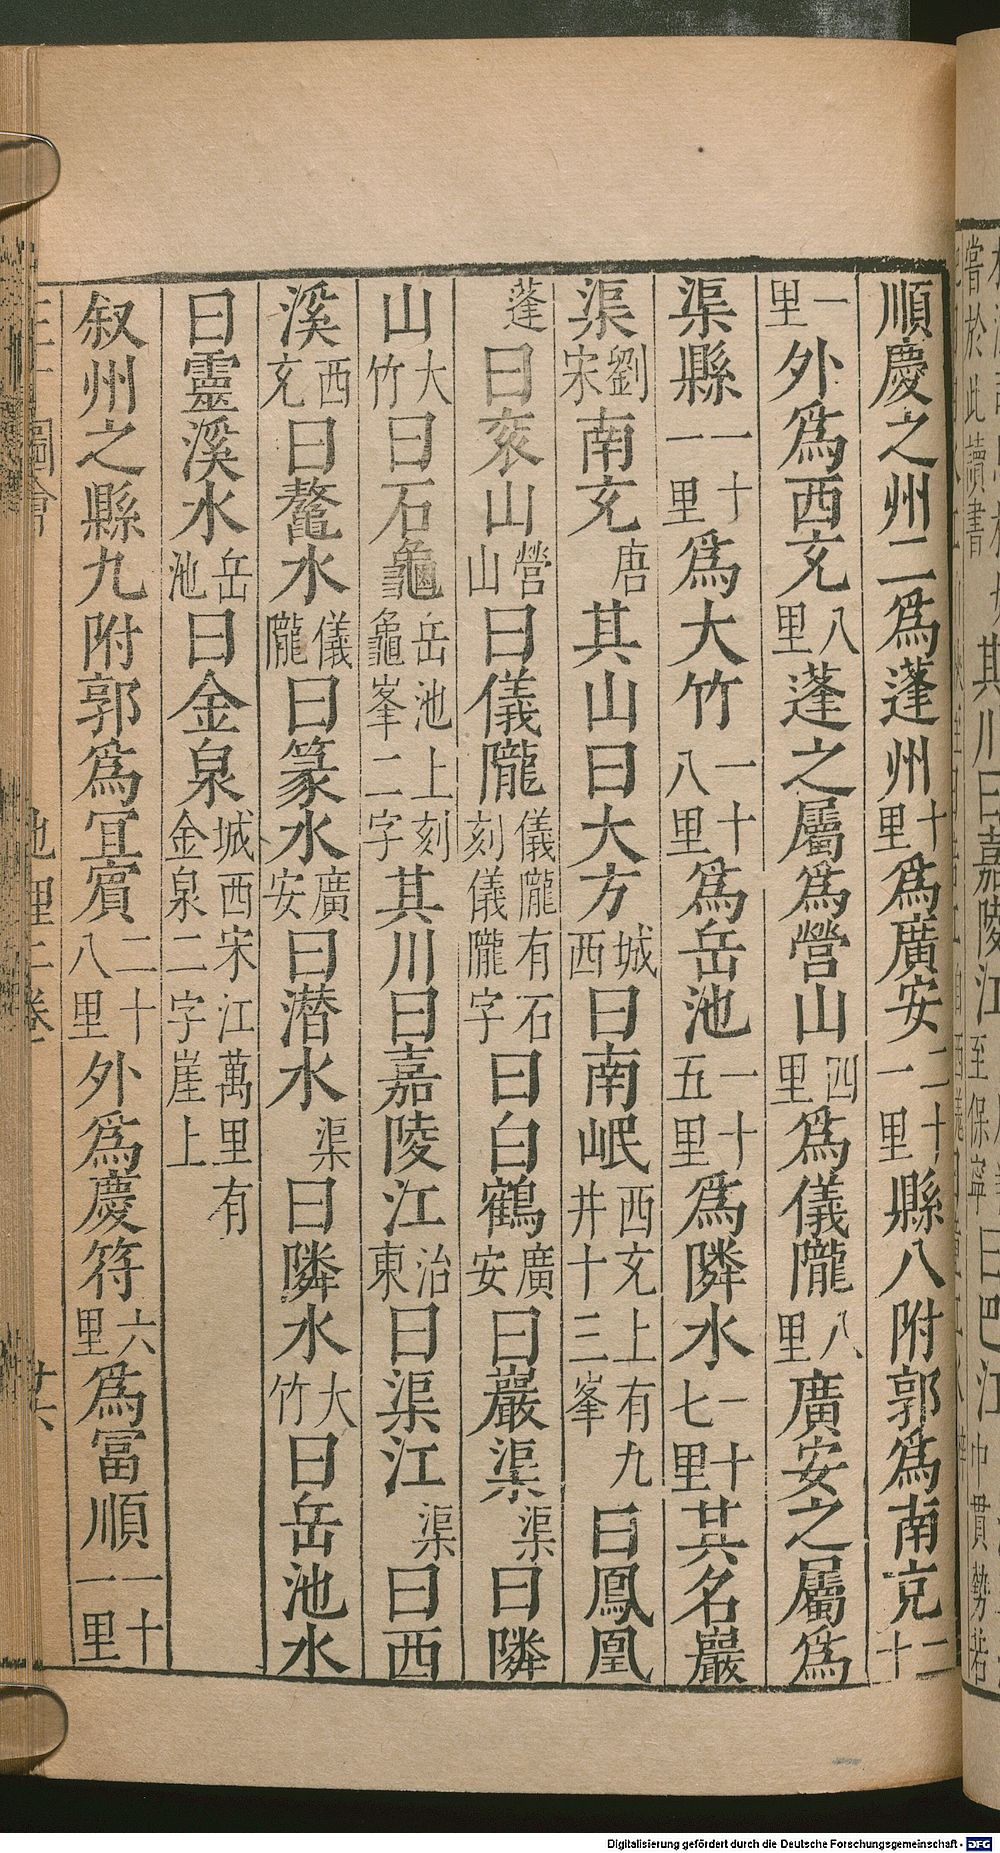 嘗於此讀書
其川曰嘉陵江至保寧曰巴江
順慶之州二爲蓬州十里爲廣安二十一里縣八附郭爲南充二十
一里外爲西充八里蓬之屬爲營山四里爲儀隴八里廣安之屬爲
渠縣一十一里爲大竹一十八里爲岳池一十五里爲隣水一十七里其名巖
渠劉宋南充唐其山曰大方城西曰南岷西充上有九井十三峯曰鳳凰
蓬曰衮山營山曰儀隴儀隴有石刻儀隴字曰白鶴廣安曰巖渠渠曰隣
山大竹曰石龜岳池上刻龜峯二字其川曰嘉陵江治東曰渠江渠曰西
溪西充曰鰲水儀隴曰篆水廣安曰潜水渠曰隣水大竹曰岳池水
曰靈溪水岳池曰金泉城西宋江萬里有金泉二字崖上
叙州之縣九附郭爲宜賓二十八里外爲慶符六里爲富順一十一里
圖會
地理二卷
廿六
Digitalisierung gefördert durch die Deutsche Forschungsgemeinschaft - DFG